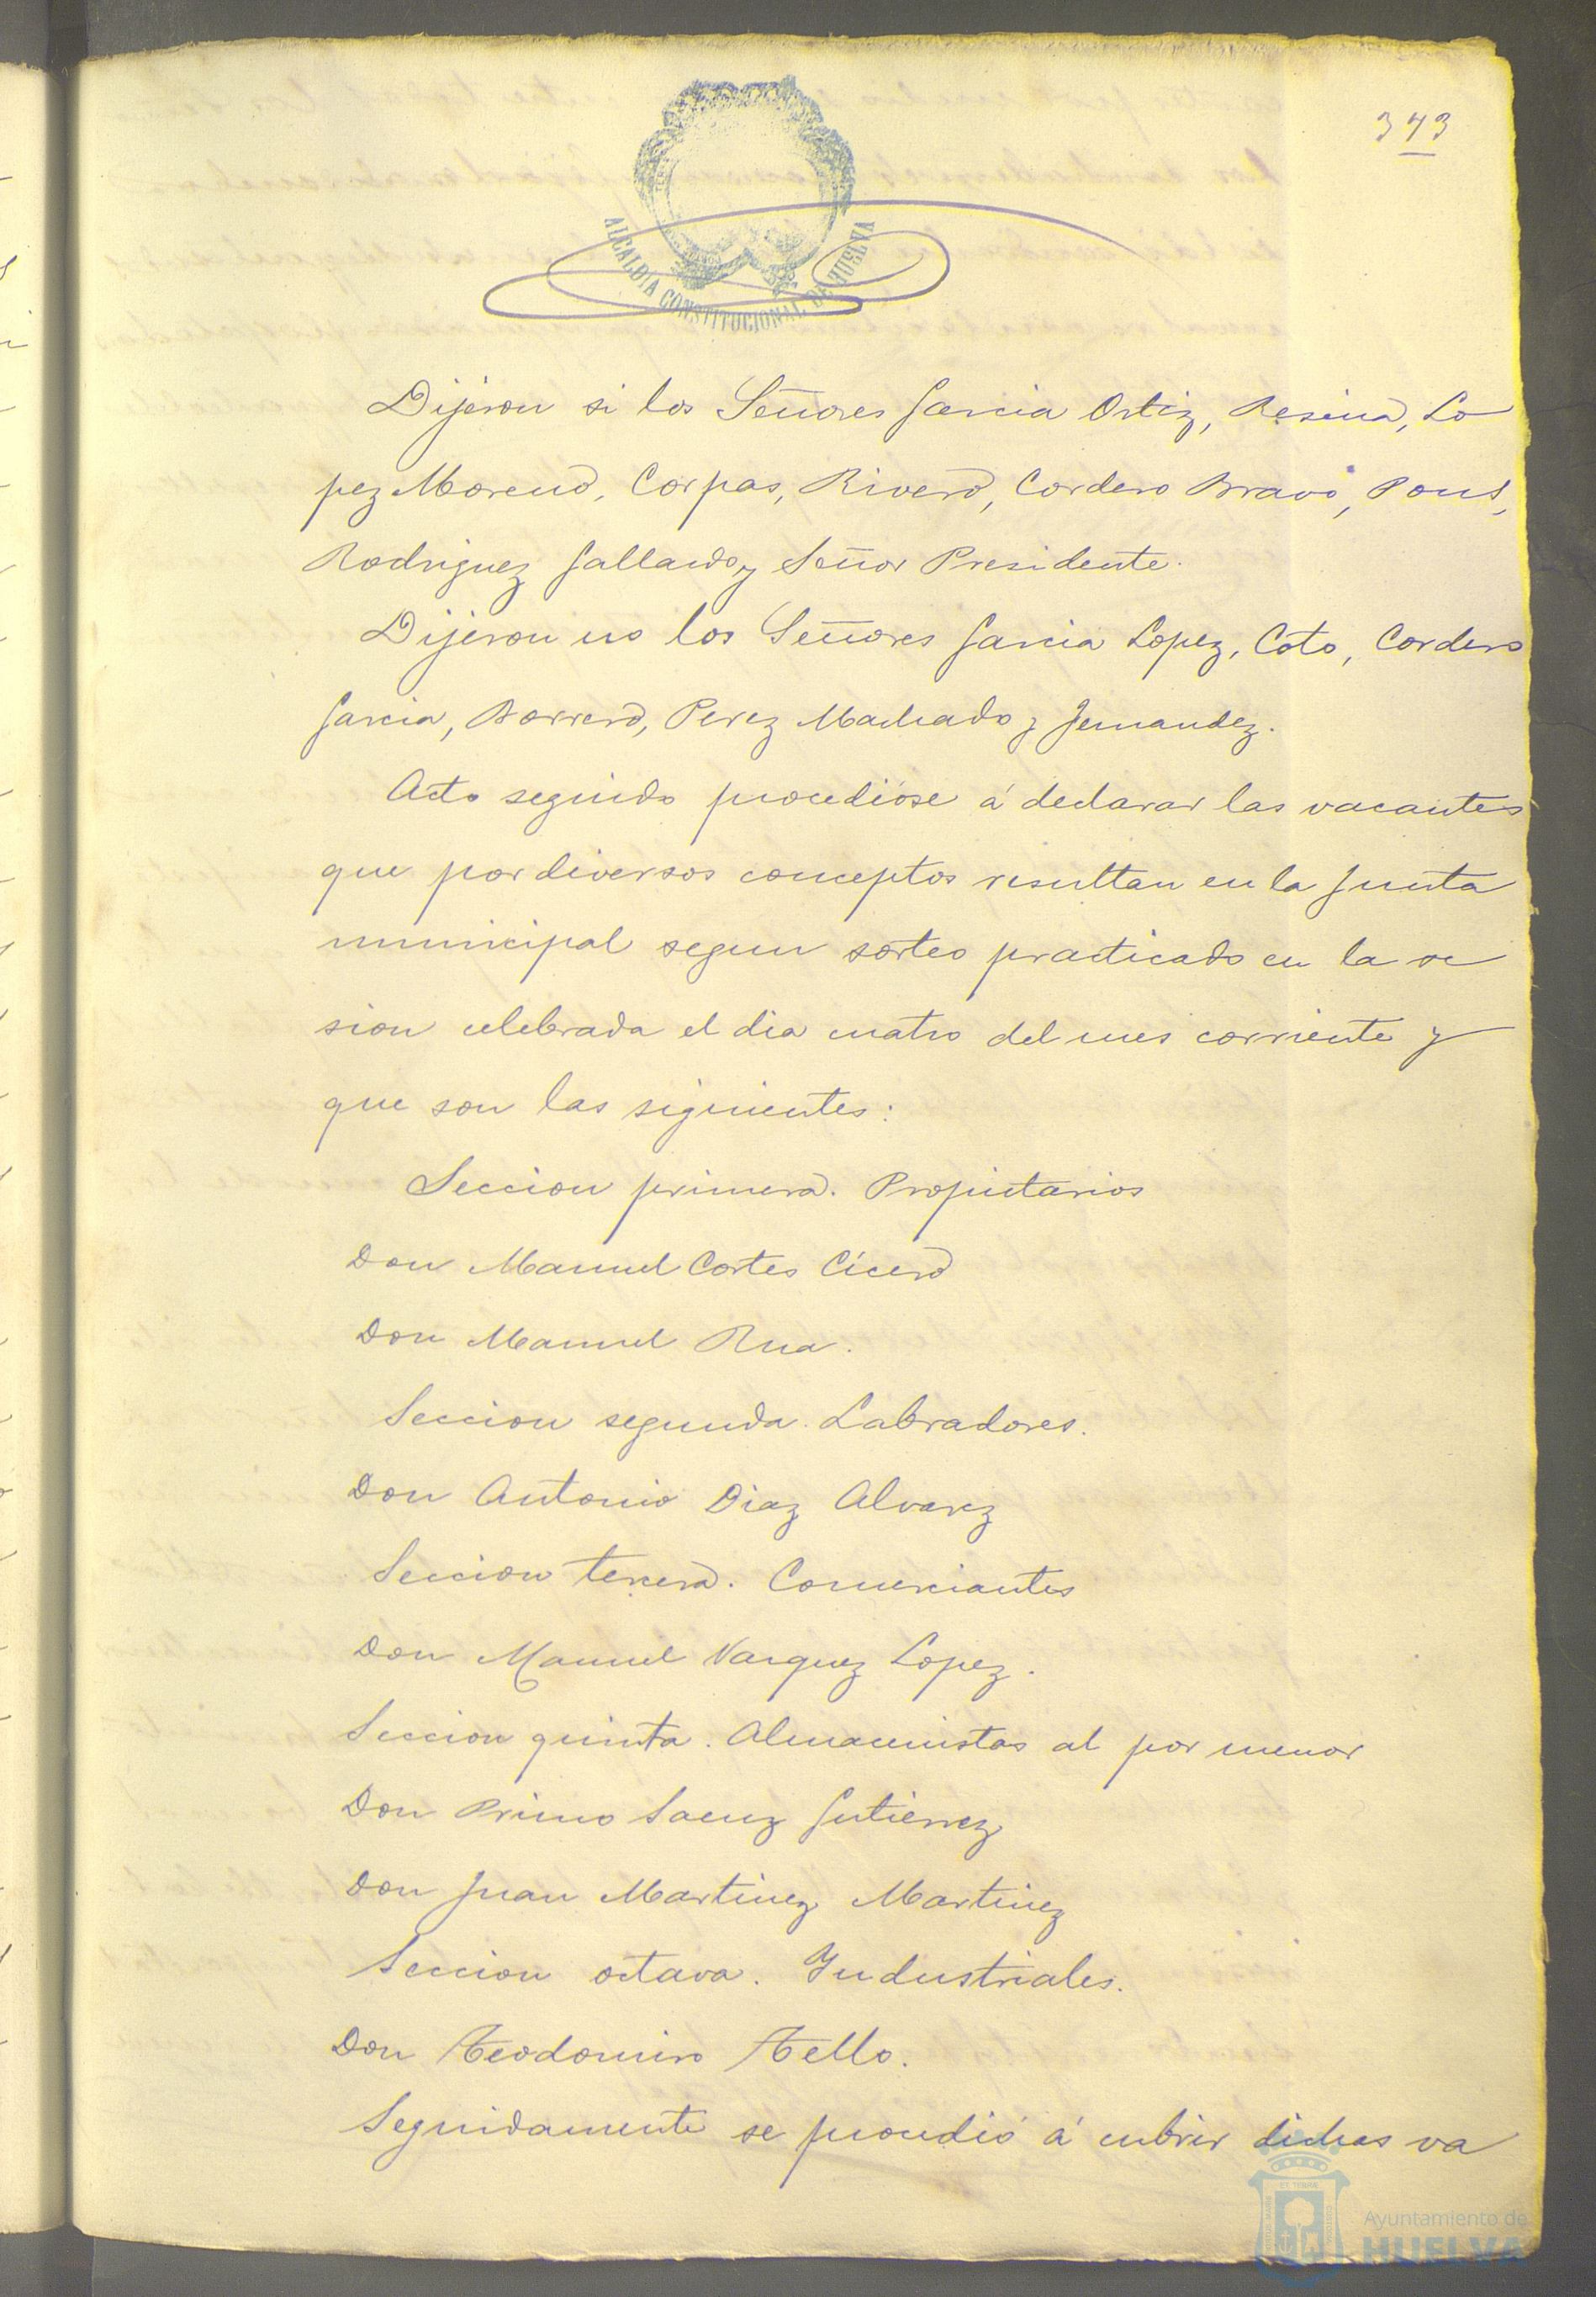 343
ALCALDIA CONSTITUCIONAL DE HUELVA
Dijeron si los Señores Garcia Ortiz, Resina, Lo
pez Moreno, Corpas, Rivero, Cordero Bravo, Pons,
Rodriguez Gallardo y Señor Presidente.
Dijeron no los Señores Garcia Lopez, Coto, Cordero
Garcia, Borrero, Perez Machado y Fernandez.
Acto seguido procedióse á declarar las vacantes
que por diversos conceptos resultan en la Junta
municipal segun sorteo practicado en la se
sion celebrada el dia cuatro del mes corriente y
que son las siguientes:
Seccion primera. Propietarios
Don Manuel Cortes Cicero
Don Manuel Rua.
Seccion segunda. Labradores.
Don Antonio Diaz Alvarez
Seccion tercera. Comerciantes
Don Manuel Vazquez Lopez.
Seccion quinta. Almacenistas al por menor
Don Primo Saenz Gutierrez
Don Juan Martinez Martinez
Seccion octava. Industriales.
Don Teodomiro Tello.
Seguidamente se procedió á cubrir dichas va
Ayuntamiento de
HUELVA